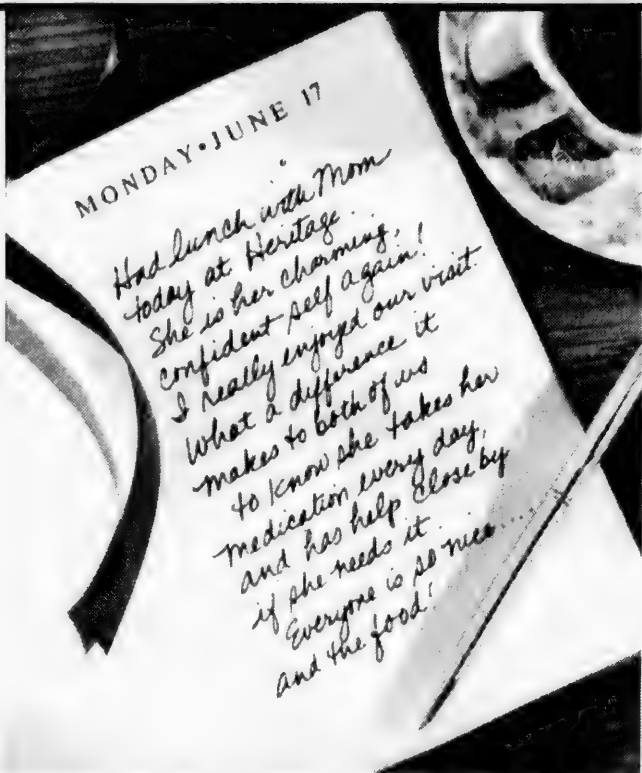 MONDAY • JUNE 17
Had lunch with Mom
today at Heritage.
She is her charming,
confident self again!
I really enjoyed our visit.
What a difference it
makes to both of us
to know she takes her
medication every day,
and has help close by
if she needs it.
Everyone is so nice....
and the food!